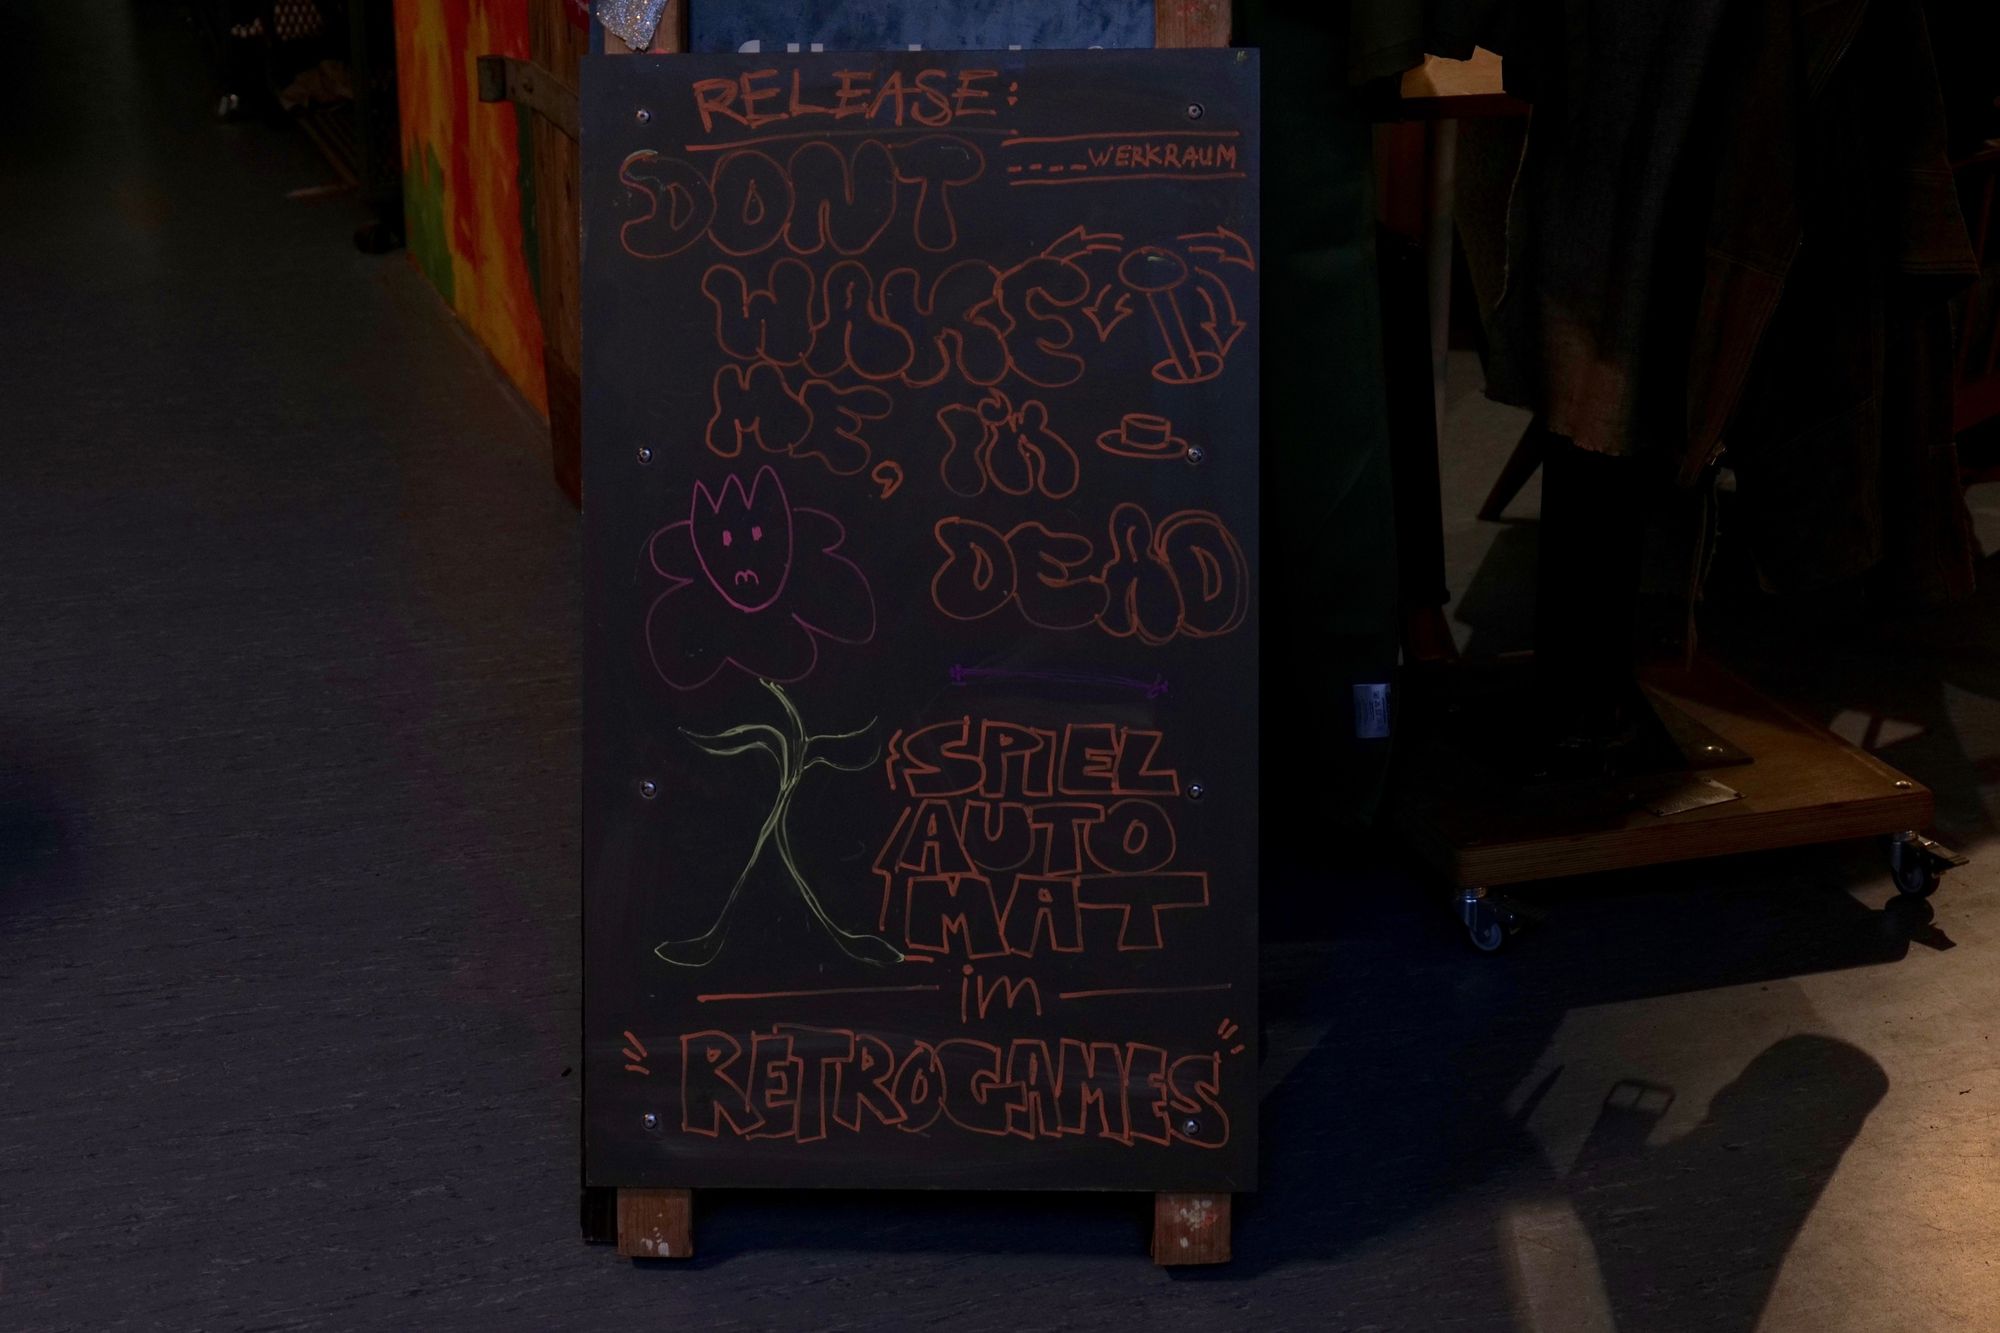 RELEASE:
DONT
----WERKRAUM
WAKE
ME, I'M
DEAD
SPIEL
AUTO
MAT
im
RETROGAMES